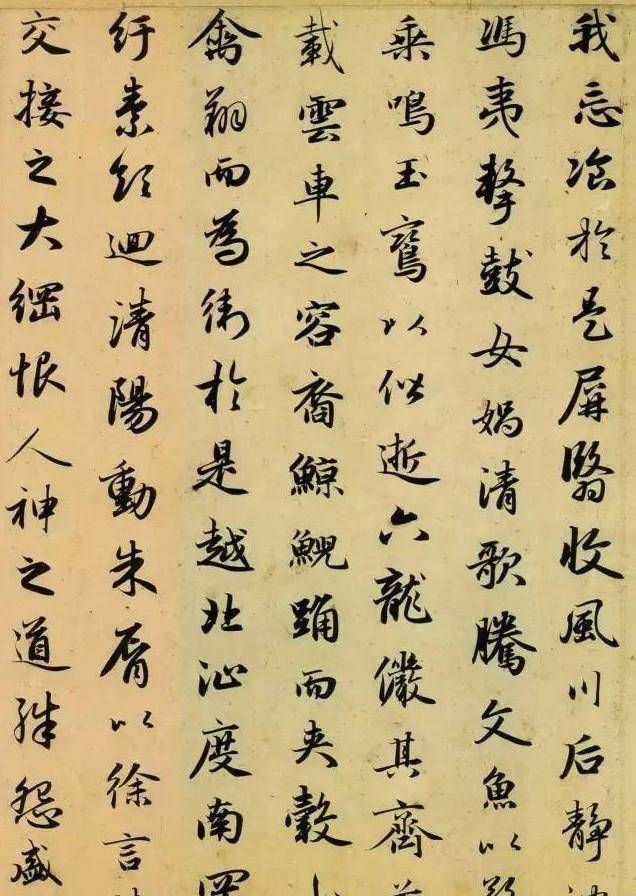 我忘飡於是屏翳收風川后靜
馮夷擊鼓女媧清歌騰文魚以
乘鳴玉鸞以偕逝六龍儼其齊
載雲車之容裔鯨鯢踊而夾轂
禽翔而為衛於是越北沚度南
紆素領迴清陽動朱脣以徐言
交接之大綱恨人神之道殊怨盛